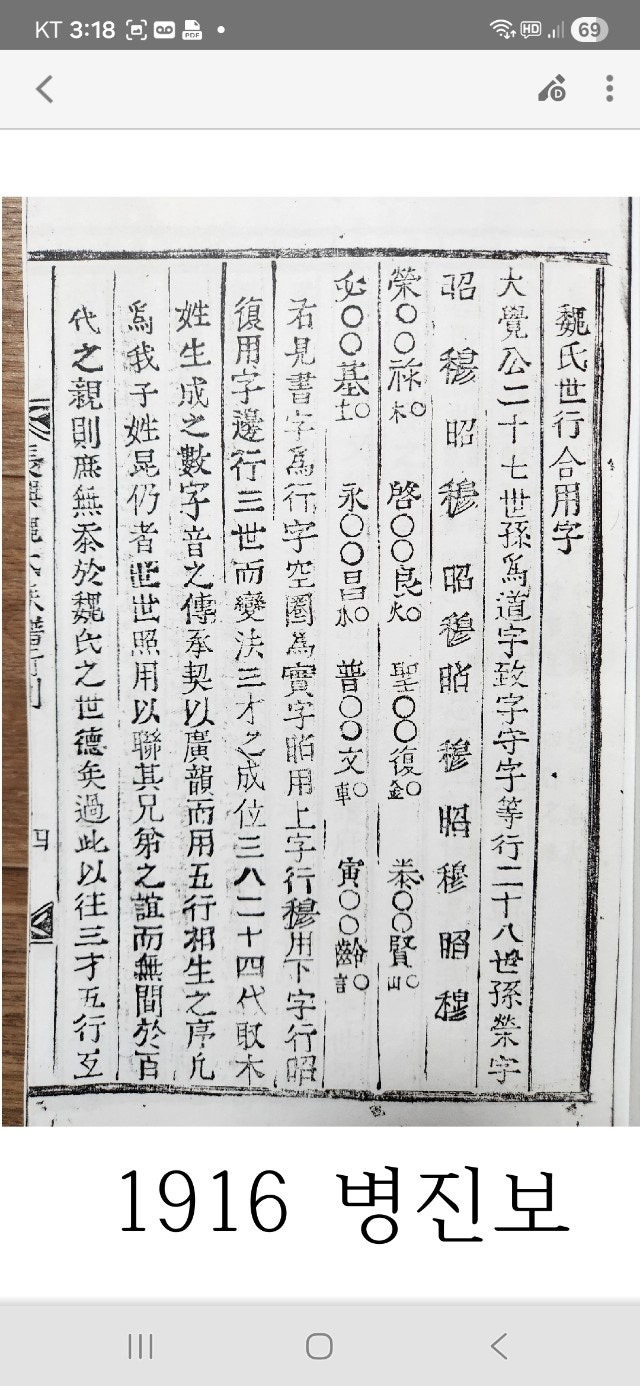 KT 3:18
HD
69
PDF
D
魏氏世行合用字
大覺公二十七世孫爲道字致字守字等行二十八世孫榮字
昭 穆 昭 穆 昭 穆 昭 穆 昭 穆 昭 穆
榮〇〇祿 木〇 啓〇〇良 火〇 聖〇〇復 金〇 泰〇〇賢 山〇
必〇〇基 土〇 永〇〇昌 水〇 普〇〇文 車〇 寅〇〇齡 言〇
右見書字爲行字空圈爲實字昭用上字行穆用下字行昭
復用字邊行三世而變法三才之成位三八二十四代取木
姓生成之數字音之傳承契以廣韻而用五行相生之序凡
爲我子姓昆仍者世世照用以聯其兄弟之誼而無間於百
代之親則庶無忝於魏氏之世德矣過此以往三才五行互
長興魏氏族譜
四
1916 병진보